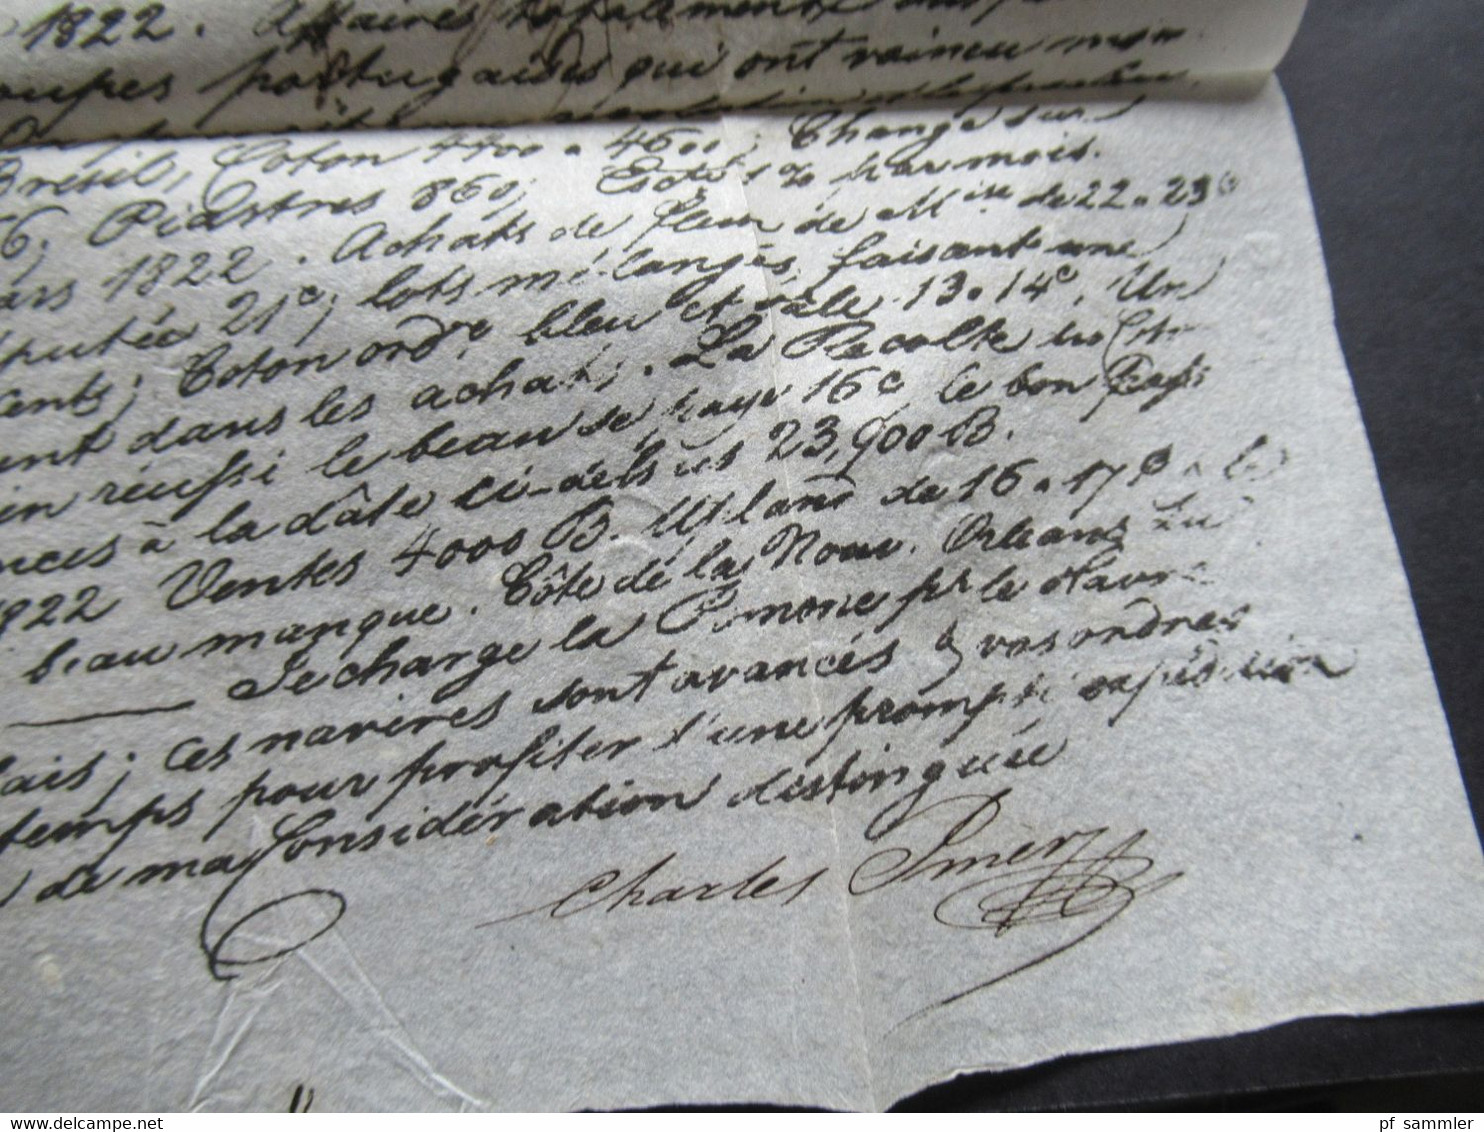 1822. Affaires totalement
oupes portugaises qui ont vaincu mon
Brésil, Coton 4400 a 4600; Change sur
6. Piastres 860; Escte 1% par mois.
ars 1822. Achats de fleur de Mlle de 22 a 23c
putée 21c; lots mélangés, faisant une
ents; Coton ordre bleu et sale 13 a 14c. Un
ent dans les achats. La Récolte
in réussi le beau se paye 16c le bon
nces à la dâte ci-dessus 23,900 B.
1822 Ventes 4000 B. Upland de 16 a 17
beau manque. Côte de la Nouv. Orleans
Je charge la Pomone pr le Havre
lais; ces navires sont avancés & vos ordres
temps pour profiter d'une prompte expédition
de ma Considération distinguée
Charles Smèr
pf_sammler